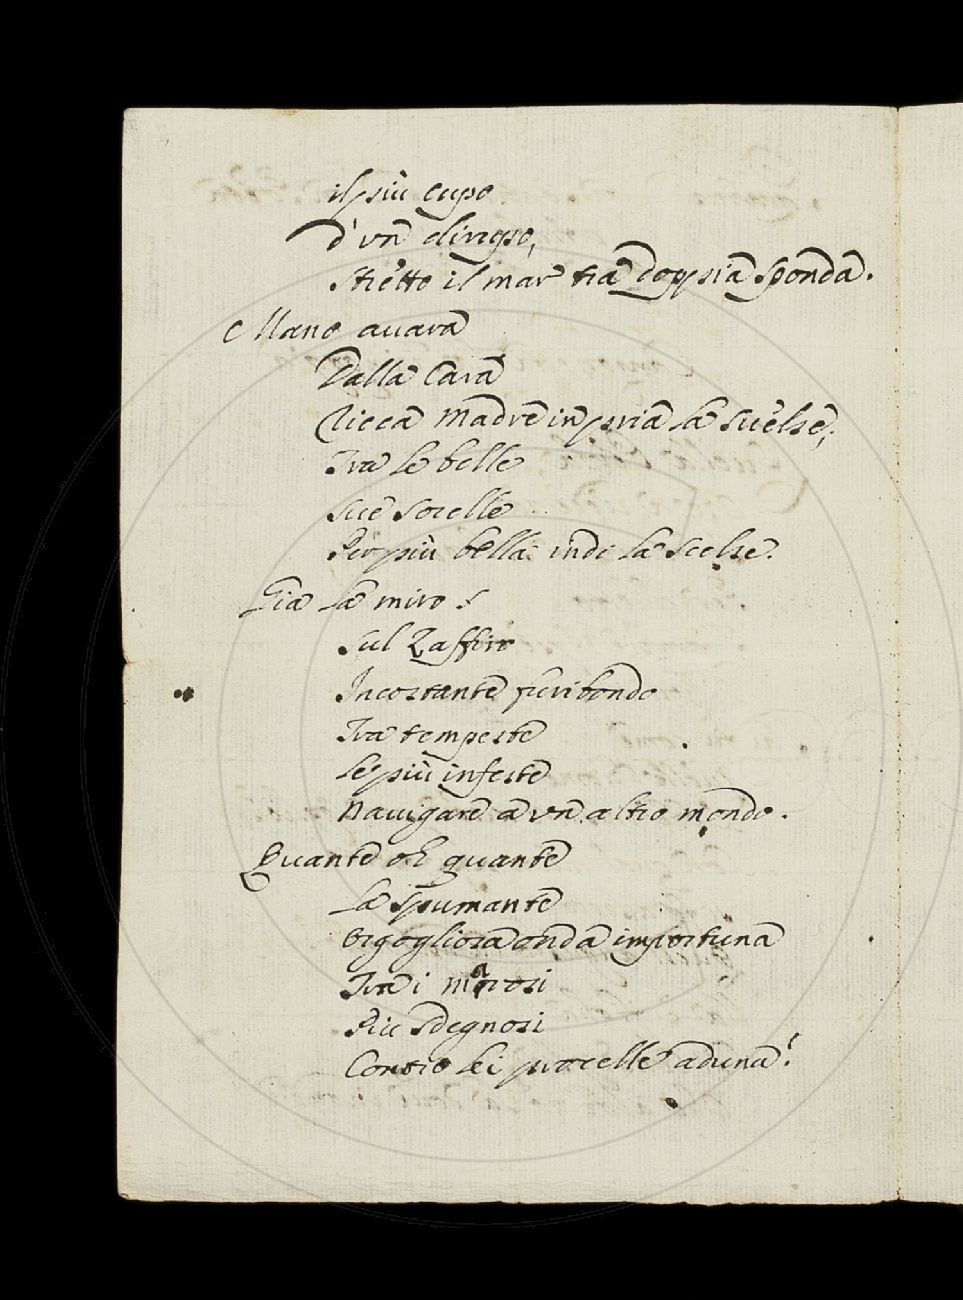 il più cupo
d'vn dirupo,
Stretto il mar tra doppia sponda.
Mano auara
Dalla cara
Ricca Madre in pria la suelse,
Tra le belle
sue sorelle
Per più bella indi la scelse.
Gia la miro
sul Zaffiro
Incostante furibondo
Tra tempeste
le più infeste
Nauigare a vn altro mondo.
Quante oh quante
La spumante
Orgogliosa onda importuna
Tra i marosi
Piu sdegnosi
Contro lei procelle aduna!